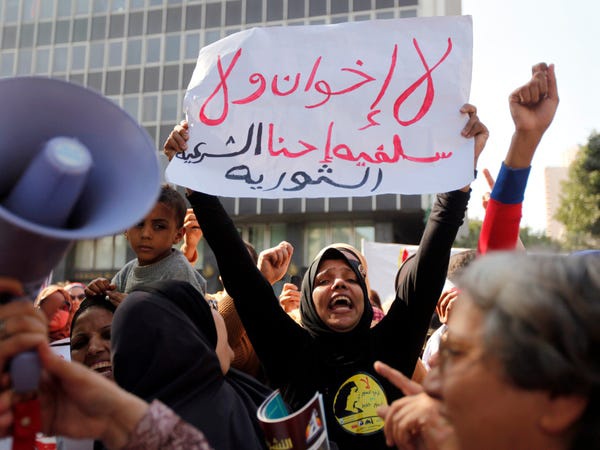 لا إخوان ولا
سلفيه إحنا الشرعية
الثوريه
لا